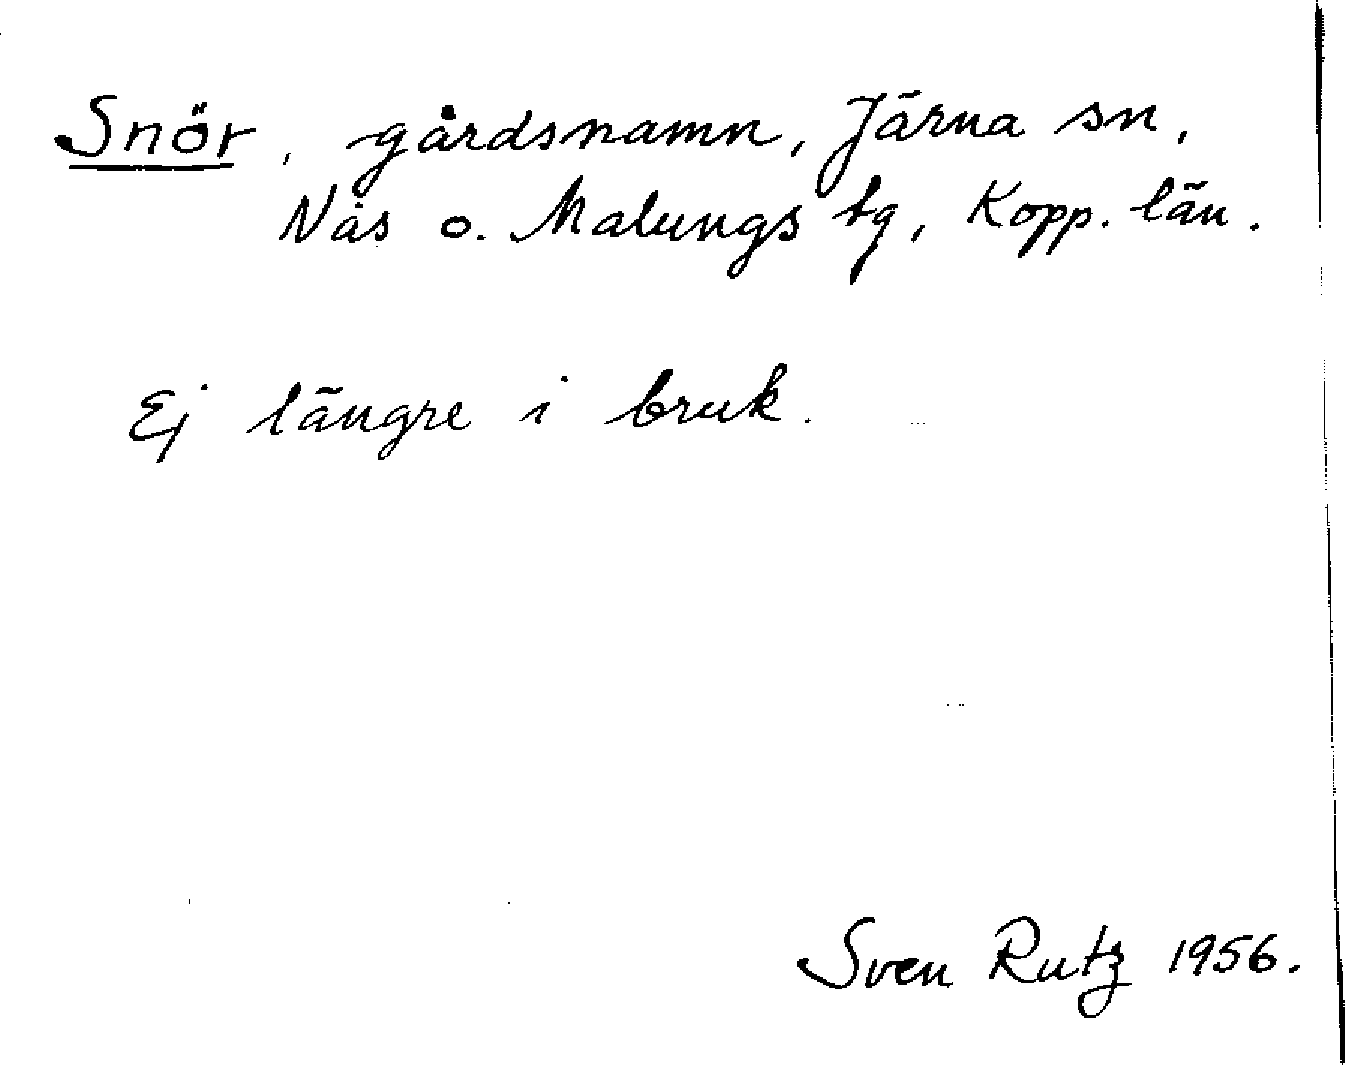 Snör, gårdsnamn, Järna sn,
Nås o. Malungs tg, Kopp. län.
Ej längre i bruk.
Sven Rutz 1956.